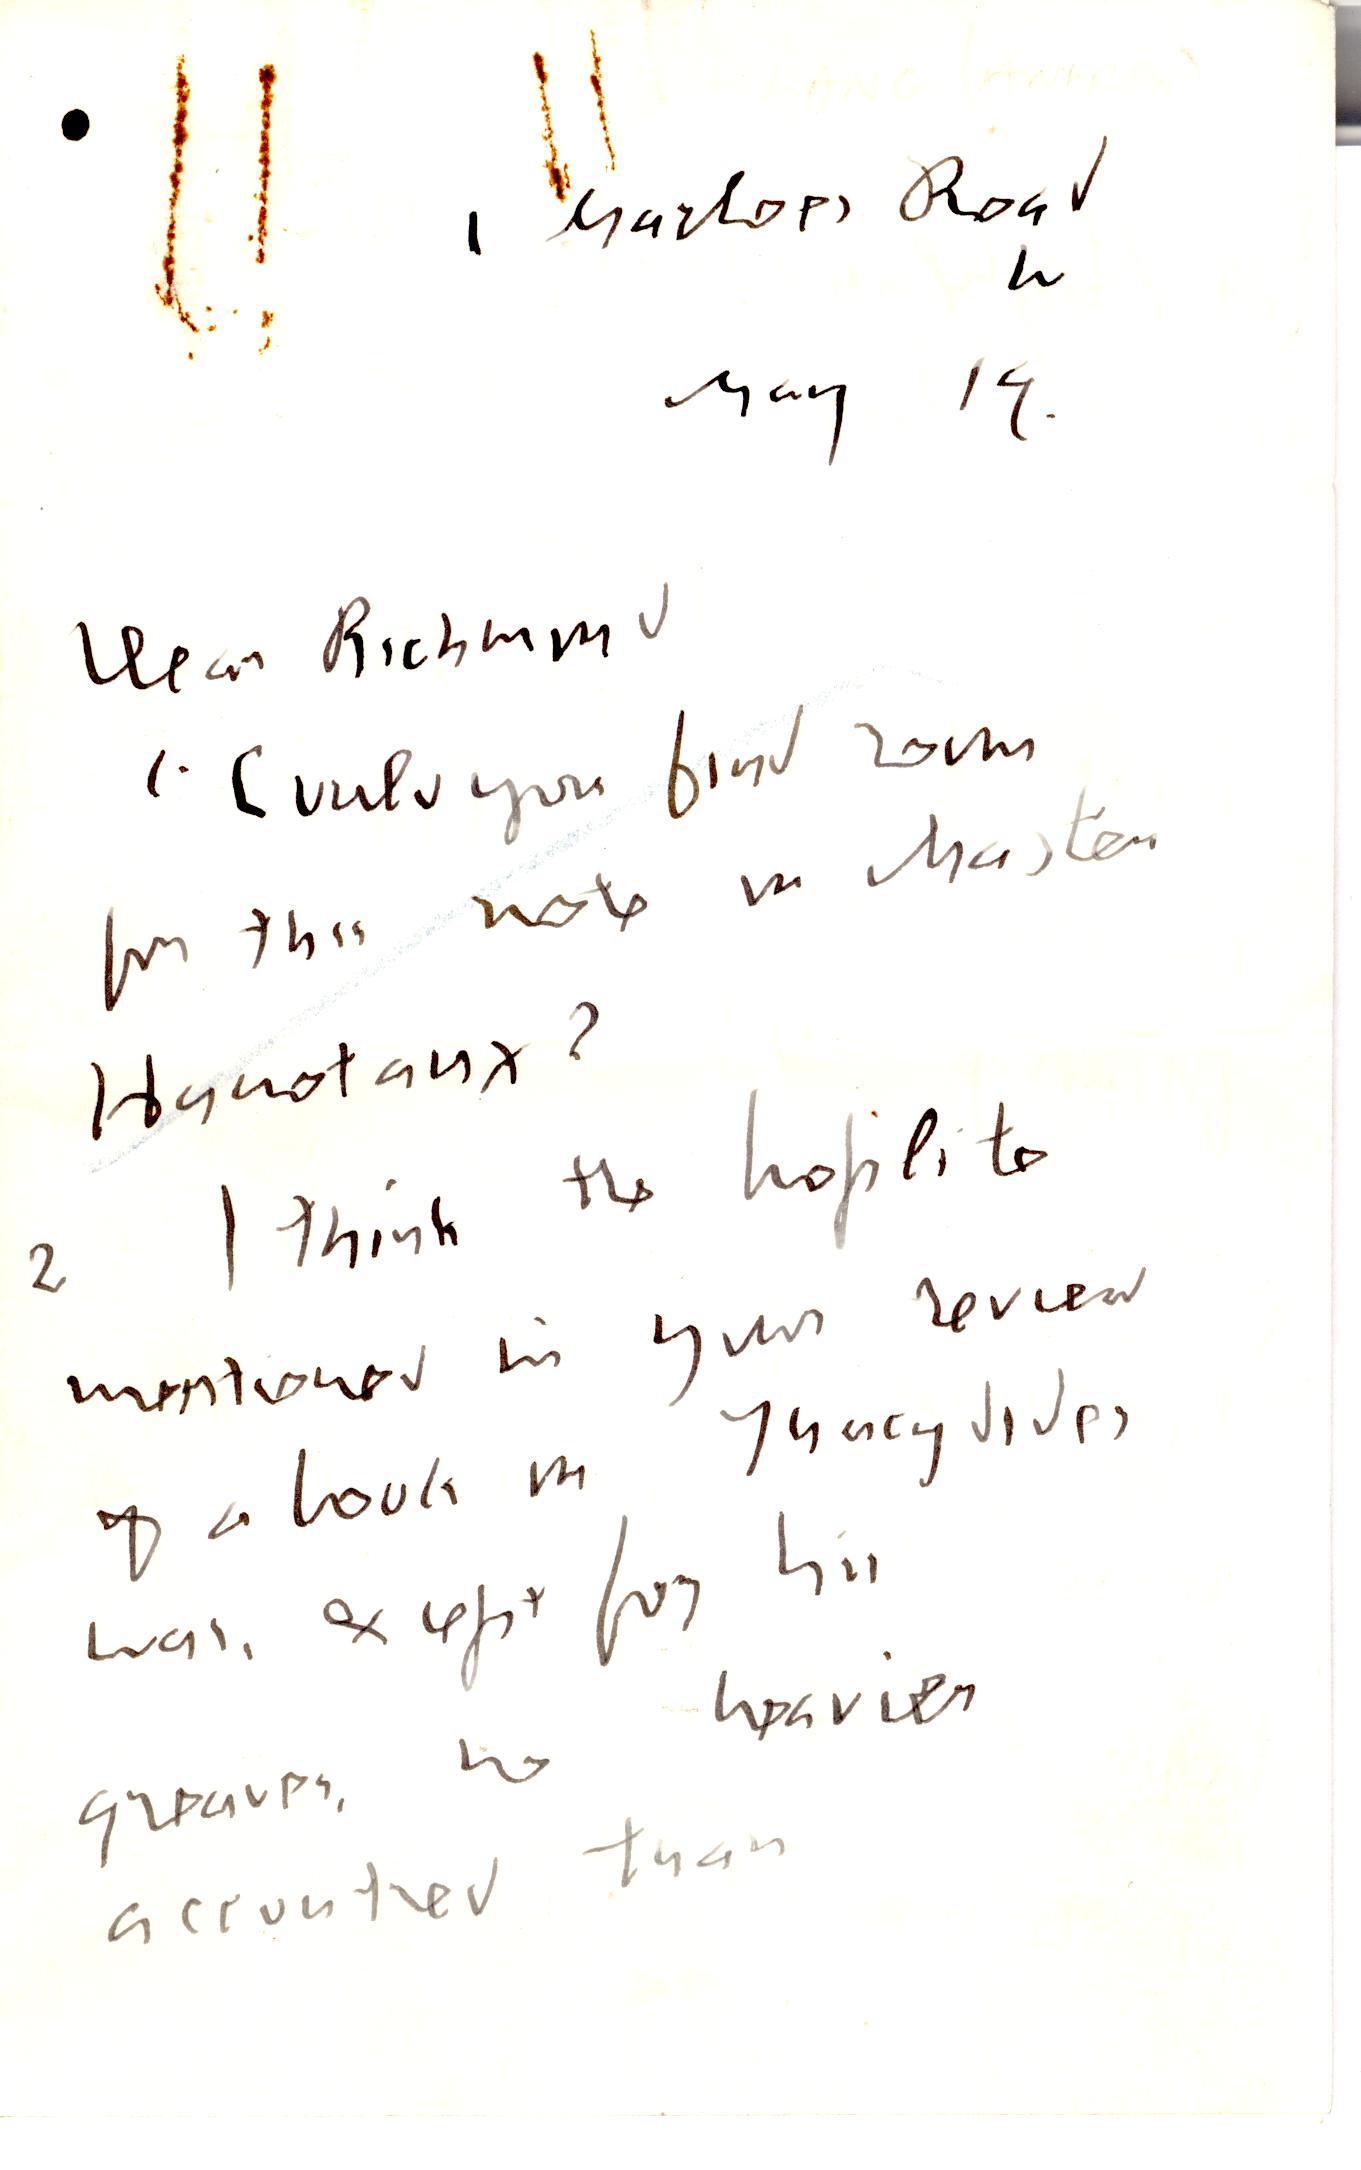 1 Marloes Road
W
May 19.
Dear Richmond
1. Could you find room
for this note on Master
Hanotaux?
2 I think the hoplite
mentioned in your review
of a book on Thucydides
was, except for his
greaves, no heavier
accoutred than